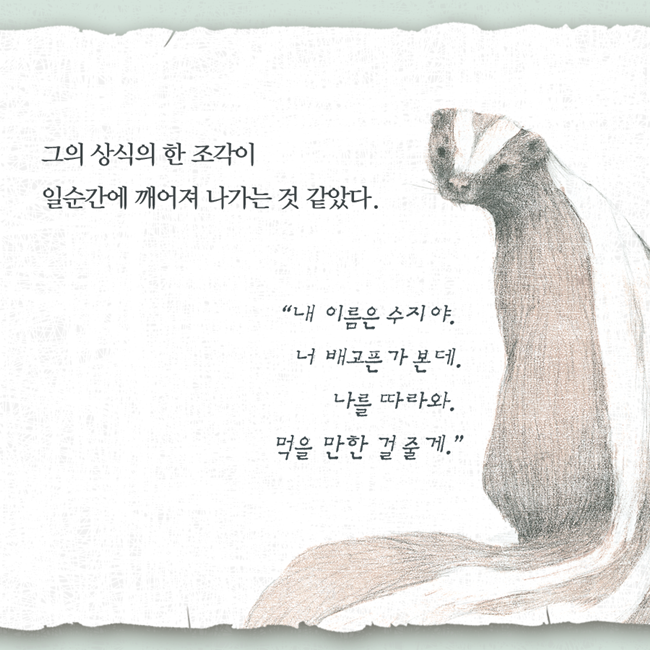 그의 상식의 한 조각이
일순간에 깨어져 나가는 것 같았다.
“내 이름은 수지야.
너 배고픈가 본데.
나를 따라와.
먹을 만한 걸 줄게.”